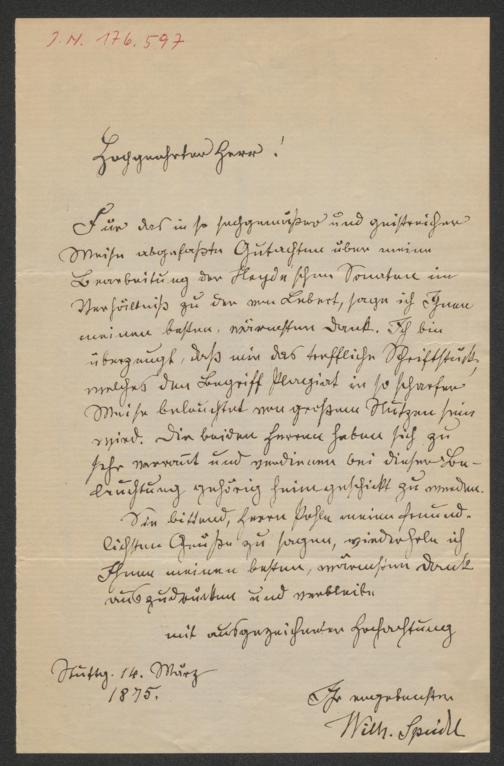 J. N. 176.597
Hochgeehrter Herr!
Für das in so sachgemäßer und geistreicher
Weise abgefaßte Gutachten über meine
Bearbeitung der Haydn'schen Sonaten im
Verhältniß zu der von Lebert, sage ich Ihnen
meinen besten, wärmsten Dank. Ich bin
überzeugt, daß mir das treffliche Schriftstück,
welches den Begriff Plagiat in so scharfer
Weise beleuchtet von großem Nutzen sein
wird. Die beiden Herren haben sich zu
sehr verrannt und verdienen bei dieser Be-
leuchtung gehörig heimgeschickt zu werden.
Sie bittend, Herrn Pohle meine freund-
lichsten Grüße zu sagen, wiederhole ich
Ihnen meinen besten, wärmsten Dank
auszudrücken und verbleibe
mit ausgezeichneter Hochachtung
Stuttg. 14. März
1875.
Ihr ergebenster
Wilh. Speidel